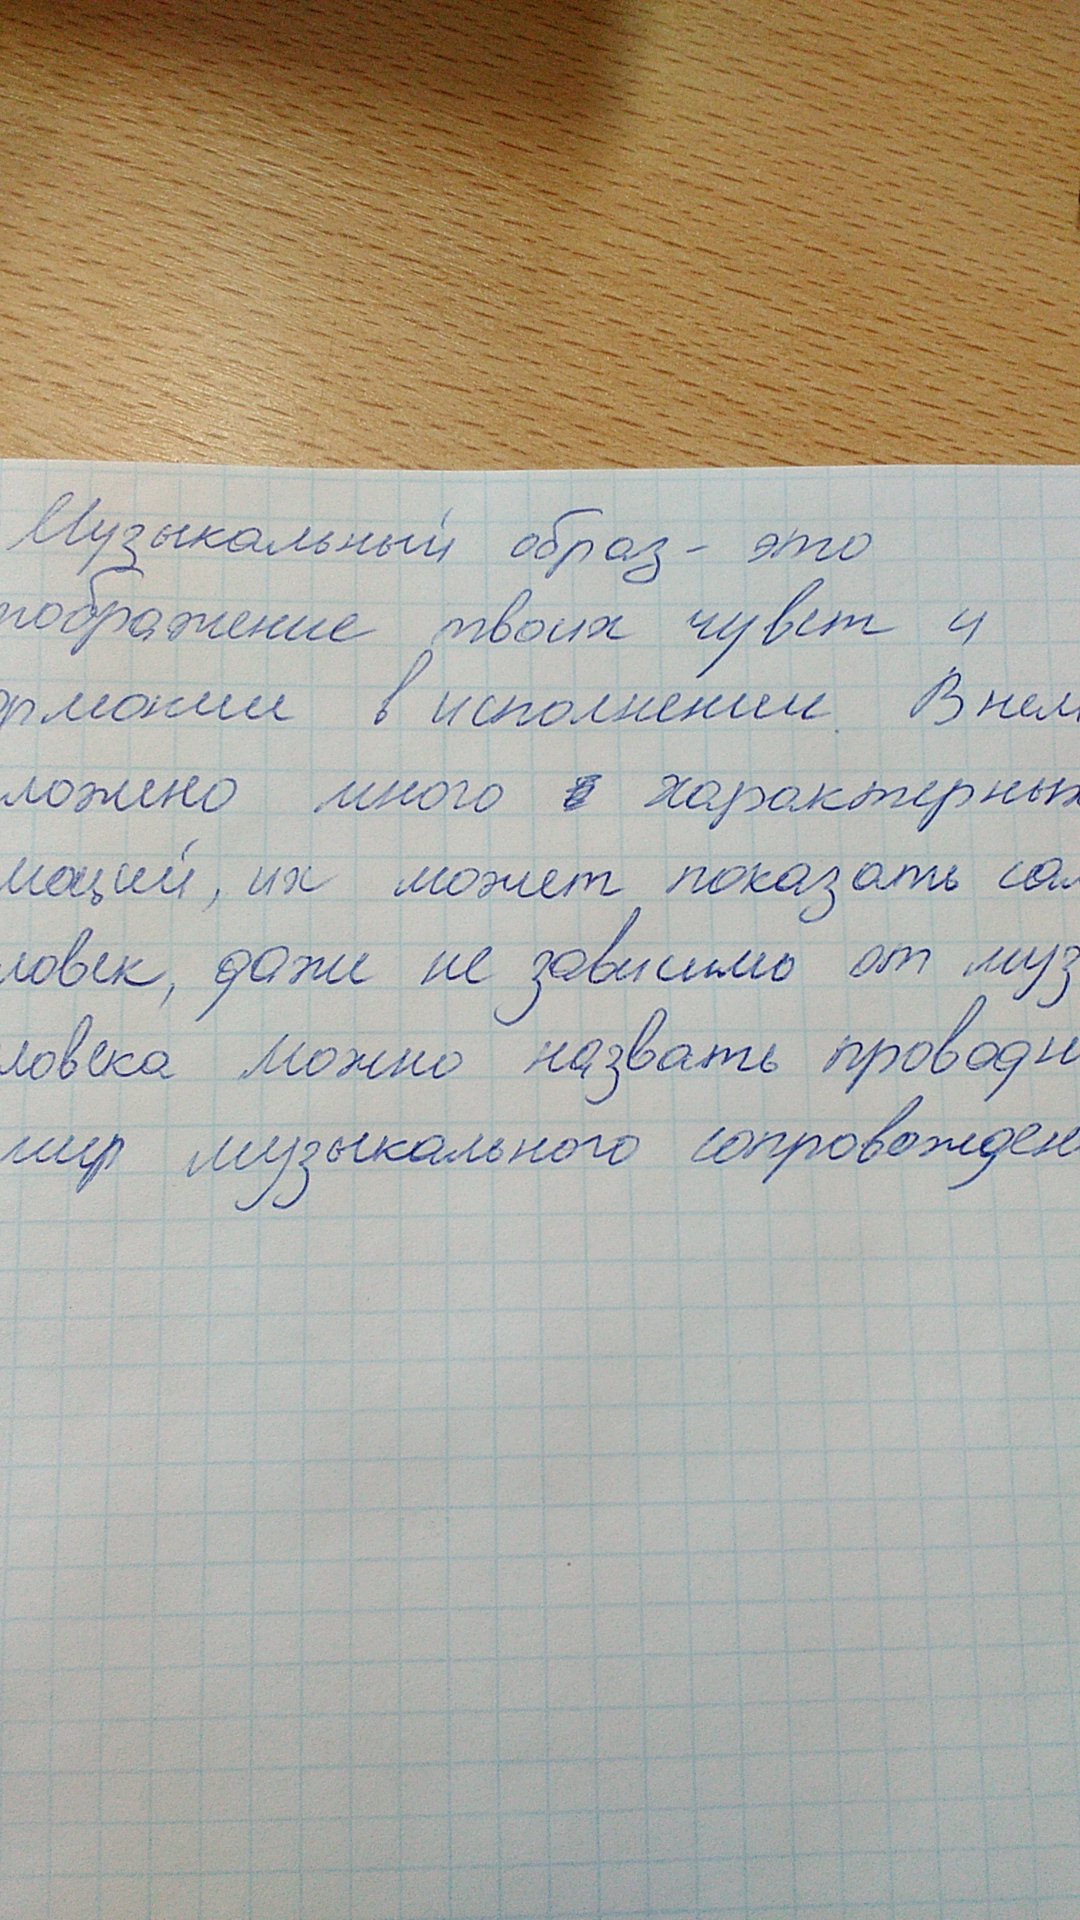 Музыкальный образ - это
тображение твоих чувст и
армонии в исполнении. В нем
ложено много характерных
моций, их может показать сам
ловек, даже не зависимо от муз
ловека можно назвать проводн
мир музыкального сопровожден